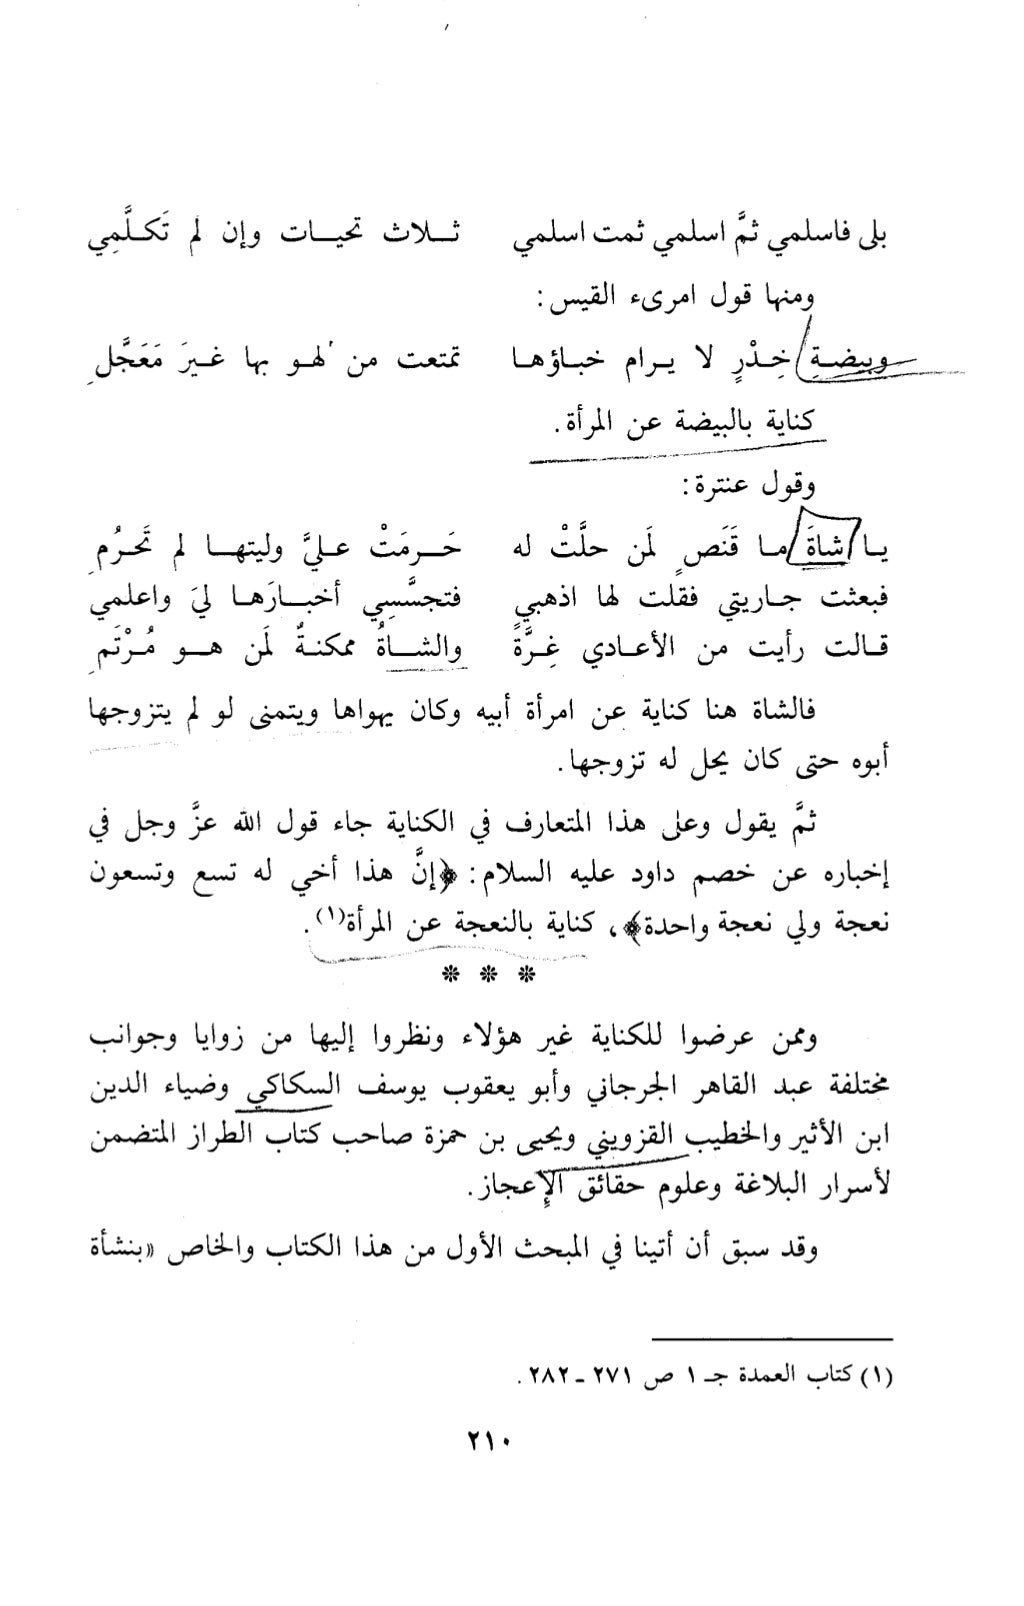 بلى فاسلمي ثمَّ اسلمي ثمت اسلمي ثـلاث تحيـات وإن لم تَكـلَّمِي
ومنها قول امرىء القيس:
وبيضـةِ خِـدْرٍ لا يـرام خبـاؤهـا تمتعت من لهـو بها غـيرَ مَعَجَّلِ
كناية بالبيضة عن المرأة.
وقول عنترة:
يـا شاةَ مـا قَنَصٍ لمَن حلَّتْ له حَـرمَتْ عـليَّ وليتهـا لم تَحرُمِ
فبعثت جـاريتي فقلت لها اذهبي فتجسَّسِي أخبـارَهـا ليَ واعلمي
قـالت رأيت من الأعـادي غِـرَّةً والشـاةُ ممكنةٌ لمَن هـو مُـرْتَمِ
فالشاة هنا كناية عن امرأة أبيه وكان يهواها ويتمنى لو لم يتزوجها
أبوه حتى كان يحل له تزوجها.
ثمَّ يقول وعلى هذا المتعارف في الكناية جاء قول الله عزَّ وجل في
إخباره عن خصم داود عليه السلام: ﴿إنَّ هذا أخي له تسع وتسعون
نعجة ولي نعجة واحدة﴾، كناية بالنعجة عن المرأة(١).
* * *
وممن عرضوا للكناية غير هؤلاء ونظروا إليها من زوايا وجوانب
مختلفة عبد القاهر الجرجاني وأبو يعقوب يوسف السكاكي وضياء الدين
ابن الأثير والخطيب القزويني ويحيى بن حمزة صاحب كتاب الطراز المتضمن
لأسرار البلاغة وعلوم حقائق الإعجاز.
وقد سبق أن أتينا في المبحث الأول من هذا الكتاب والخاص «بنشأة
(١) كتاب العمدة جـ ١ ص ٢٧١ ـ ٢٨٢.
٢١٠